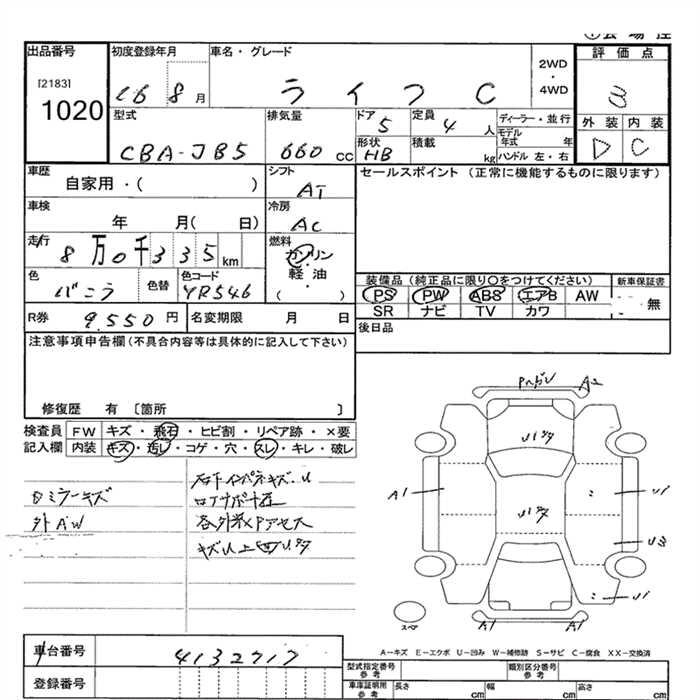 出品番号
[2183]
1020
初度登録年月
16 8月
車名・グレード
ライフ C
2WD
・
4WD
評価点
3
外装 内装
D C
型式
CBA-JB5
排気量
660 cc
ドア
5
定員
4 人
形状
HB
積載
kg
ディーラー・並行
モデル年式 年
ハンドル 左・右
車歴
自家用・( )
シフト
AT
セールスポイント (正常に機能するものに限ります)
車検
年 月( 日)
冷房
AC
走行
8万0千335km
燃料
ガソリン
・
軽油
( )
色
バニラ
色替
色コード
YR546
装備品 (純正品に限り○をつけてください)
新車保証書
PS PW ABS エアB AW
SR ナビ TV カワ
無
R券 9,550円
名変期限 月 日
後日品
注意事項申告欄(不具合内容等は具体的に記入して下さい)
修復歴 有 〔箇所 〕
検査員記入欄
FW キズ・飛石・ヒビ割・リペア跡・×要
内装 キズ・汚レ・コゲ・穴・スレ・キレ・破レ
ロミラーキズ
外AW
A2
A1
U1
U3
A1
A1
スペ
A-キズ E-エクボ U-凹み W-補修跡 S-サビ C-腐食 XX-交換済
車台番号 4132717
登録番号
型式指定番号
参考
類別区分番号
参考
車庫証明用
参考
長さ cm
幅 cm
高さ cm